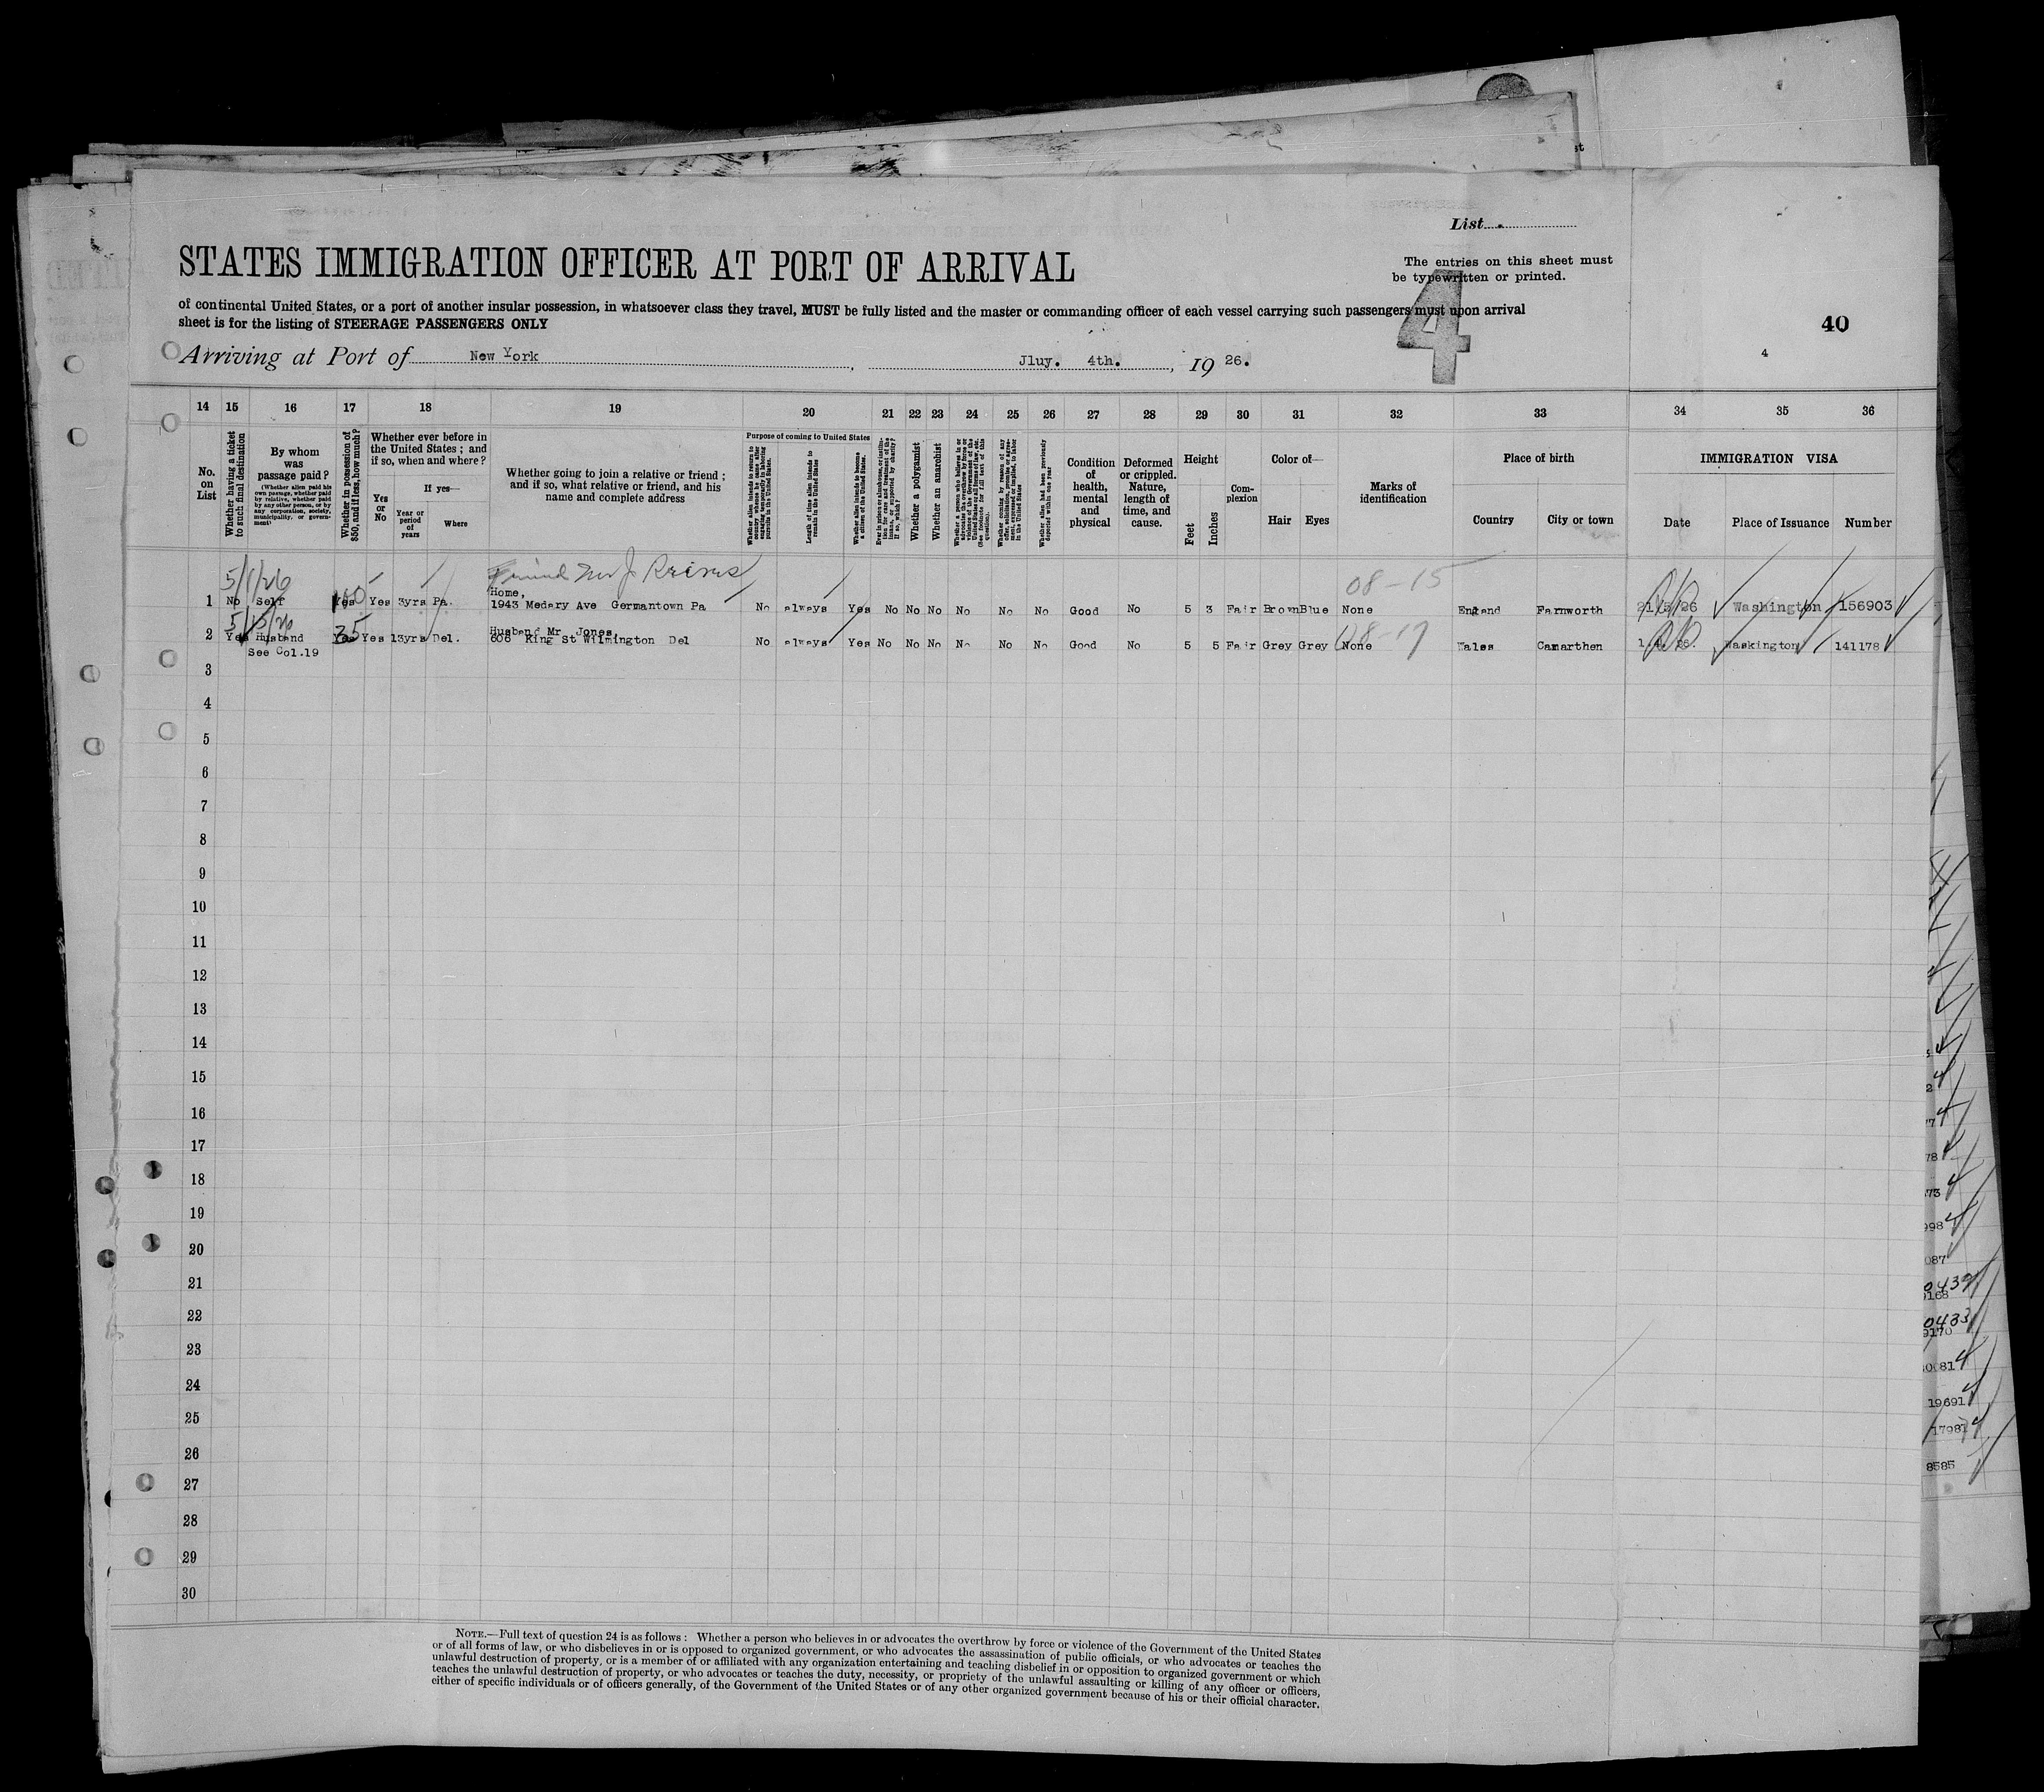 List
STATES IMMIGRATION OFFICER AT PORT OF ARRIVAL
The entries on this sheet must
be typewritten or printed.
4
of continental United States, or a port of another insular possession, in whatsoever class they travel, MUST be fully listed and the master or commanding officer of each vessel carrying such passengers must upon arrival
sheet is for the listing of STEERAGE PASSENGERS ONLY
40
4
Arriving at Port of New York, Jluy. 4th., 19 26.
14 15 16 17 18 19 20 21 22 23 24 25 26 27 28 29 30 31 32 33 34 35 36
No. on List
Whether having a ticket to such final destination
By whom was passage paid?
(Whether alien paid his own passage, whether paid by relative, whether paid by any other person, or by any corporation, society, municipality, or government)
Whether in possession of $50, and if less, how much?
Whether ever before in the United States; and if so, when and where?
Yes or No
If yes—
Year or period of years
Where
Whether going to join a relative or friend; and if so, what relative or friend, and his name and complete address
Purpose of coming to United States
Whether alien intends to return to country whence he came after engaging temporarily in laboring pursuits in the United States.
Length of time alien intends to remain in the United States
Whether alien intends to become a citizen of the United States.
Ever in prison or almshouse, or institution for care and treatment of the insane, or supported by charity? If so, which?
Whether a polygamist
Whether an anarchist
Whether a person who believes in or advocates the overthrow by force or violence of the Government of the United States or all forms of law, etc. (See footnote for full text of this question).
Whether coming by reason of any offer, solicitation, promise or agreement, expressed or implied, to labor in the United States
Whether alien had been previously deported within one year
Condition of health, mental and physical
Deformed or crippled. Nature, length of time, and cause.
Height
Feet
Inches
Complexion
Color of—
Hair
Eyes
Marks of identification
Place of birth
Country
City or town
IMMIGRATION VISA
Date
Place of Issuance
Number
5/1/26
Friend Mrs J Reeves
08-15
Home,
1 No Self Yes 100 Yes 3yrs Pa. 1943 Medary Ave Germantown Pa No always Yes No No No No No No Good No 5 3 Fair Brown Blue None England Farnworth 21/5/26 Washington 156903
5/15/26
Husband Mr Jones,
08-17
2 Yes Husband Yes 35 Yes 13yrs Del. 606 King St Wilmington Del No always Yes No No No No No No Good No 5 5 Fair Grey Grey None Wales Camarthen Waskington 141178
See Col.19
3
4
5
6
7
8
9
10
11
12
13
14
15
16
17
18
19
20
21
22
23
24
25
26
27
28
29
30
78
998
087
0439
9168
0433
9170
19691
17981
8585
NOTE.—Full text of question 24 is as follows: Whether a person who believes in or advocates the overthrow by force or violence of the Government of the United States
or of all forms of law, or who disbelieves in or is opposed to organized government, or who advocates the assassination of public officials, or who advocates or teaches the
unlawful destruction of property, or is a member of or affiliated with any organization entertaining and teaching disbelief in or opposition to organized government or which
teaches the unlawful destruction of property, or who advocates or teaches the duty, necessity, or propriety of the unlawful assaulting or killing of any officer or officers,
either of specific individuals or of officers generally, of the Government of the United States or of any other organized government because of his or their official character.